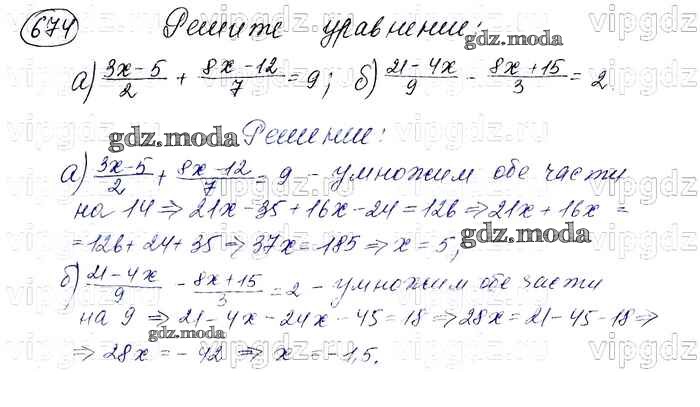 674 Решите уравнение:
а) (3x-5)/2 + (8x-12)/7 = 9; б) (21-4x)/9 - (8x+15)/3 = 2
Решение:
а) (3x-5)/2 + (8x-12)/7 = 9 - умножим обе части
на 14 ⇒ 21x-35+16x-24=126 ⇒ 21x+16x =
=126+24+35 ⇒ 37x=185 ⇒ x=5;
б) (21-4x)/9 - (8x+15)/3 = 2 - умножим обе части
на 9 ⇒ 21-4x-24x-45=18 ⇒ 28x=21-45-18 ⇒
⇒ 28x=-42 ⇒ x=-1,5.
gdz.moda
gdz.moda
gdz.moda
gdz.moda
vipgdz